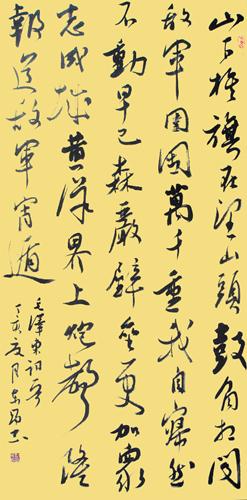 山下旌旗在望山頭鼓角相闻
敌軍围困萬千重我自巋然
不動早已森嚴壁壘更加眾
志成城黄洋界上炮聲隆
報道敌軍宵遁
毛澤東詞
丁亥夏月